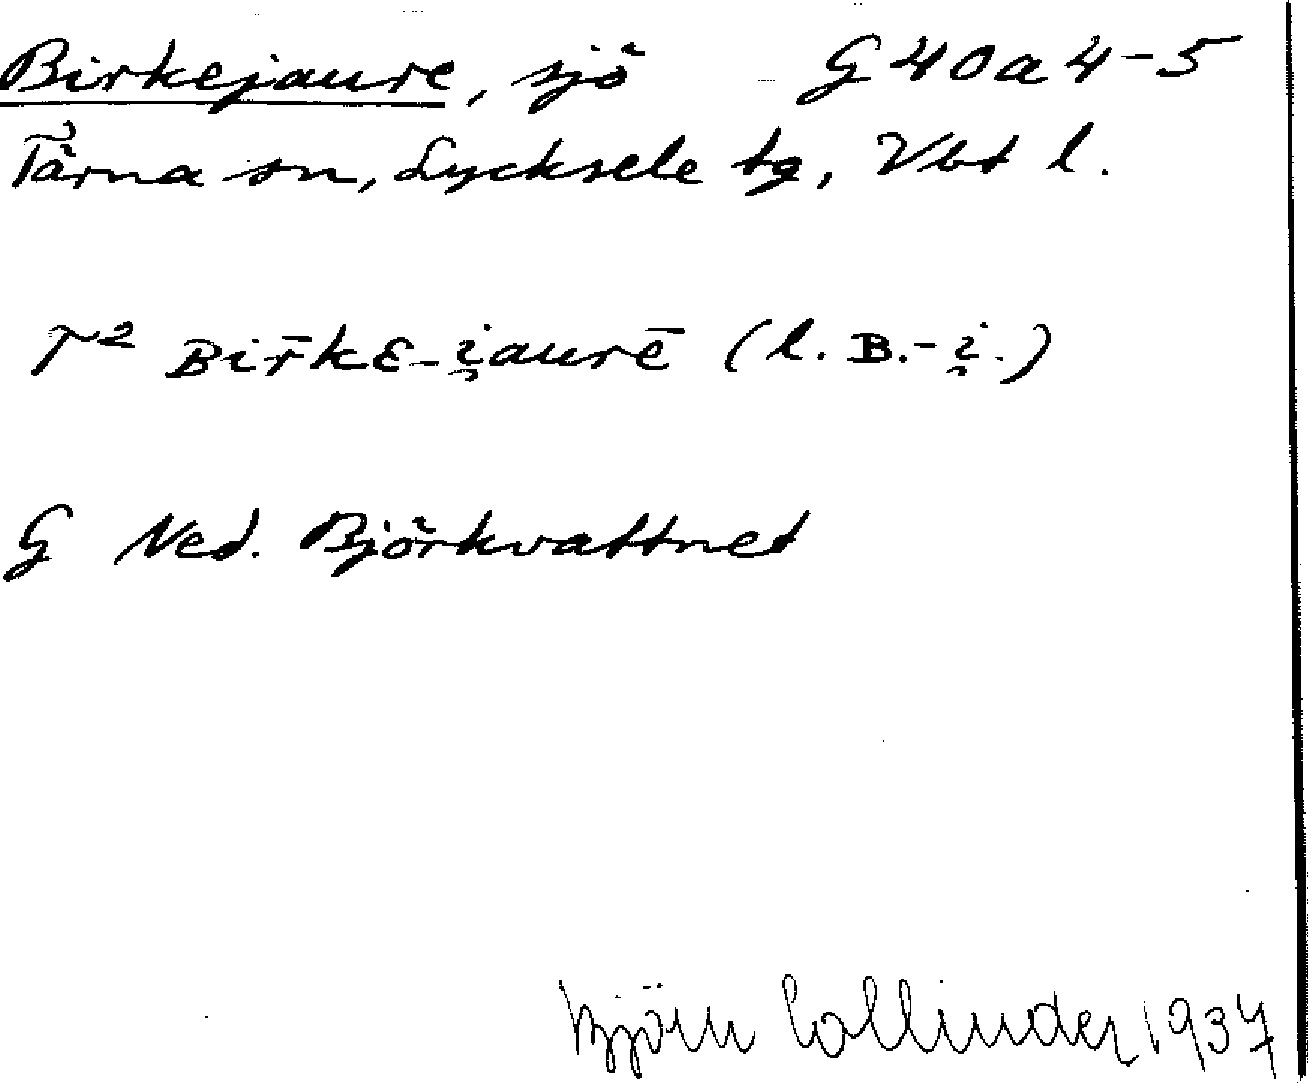 Birkejaure, sjö G 40 a 4-5
Tärna sn, Lycksele tg, Vbt l.
T² ʙir̄kɛ-i̯aurē (l. ʙ.-i̯.)
G Ned. Björkvattnet
Björn Collinder 1937